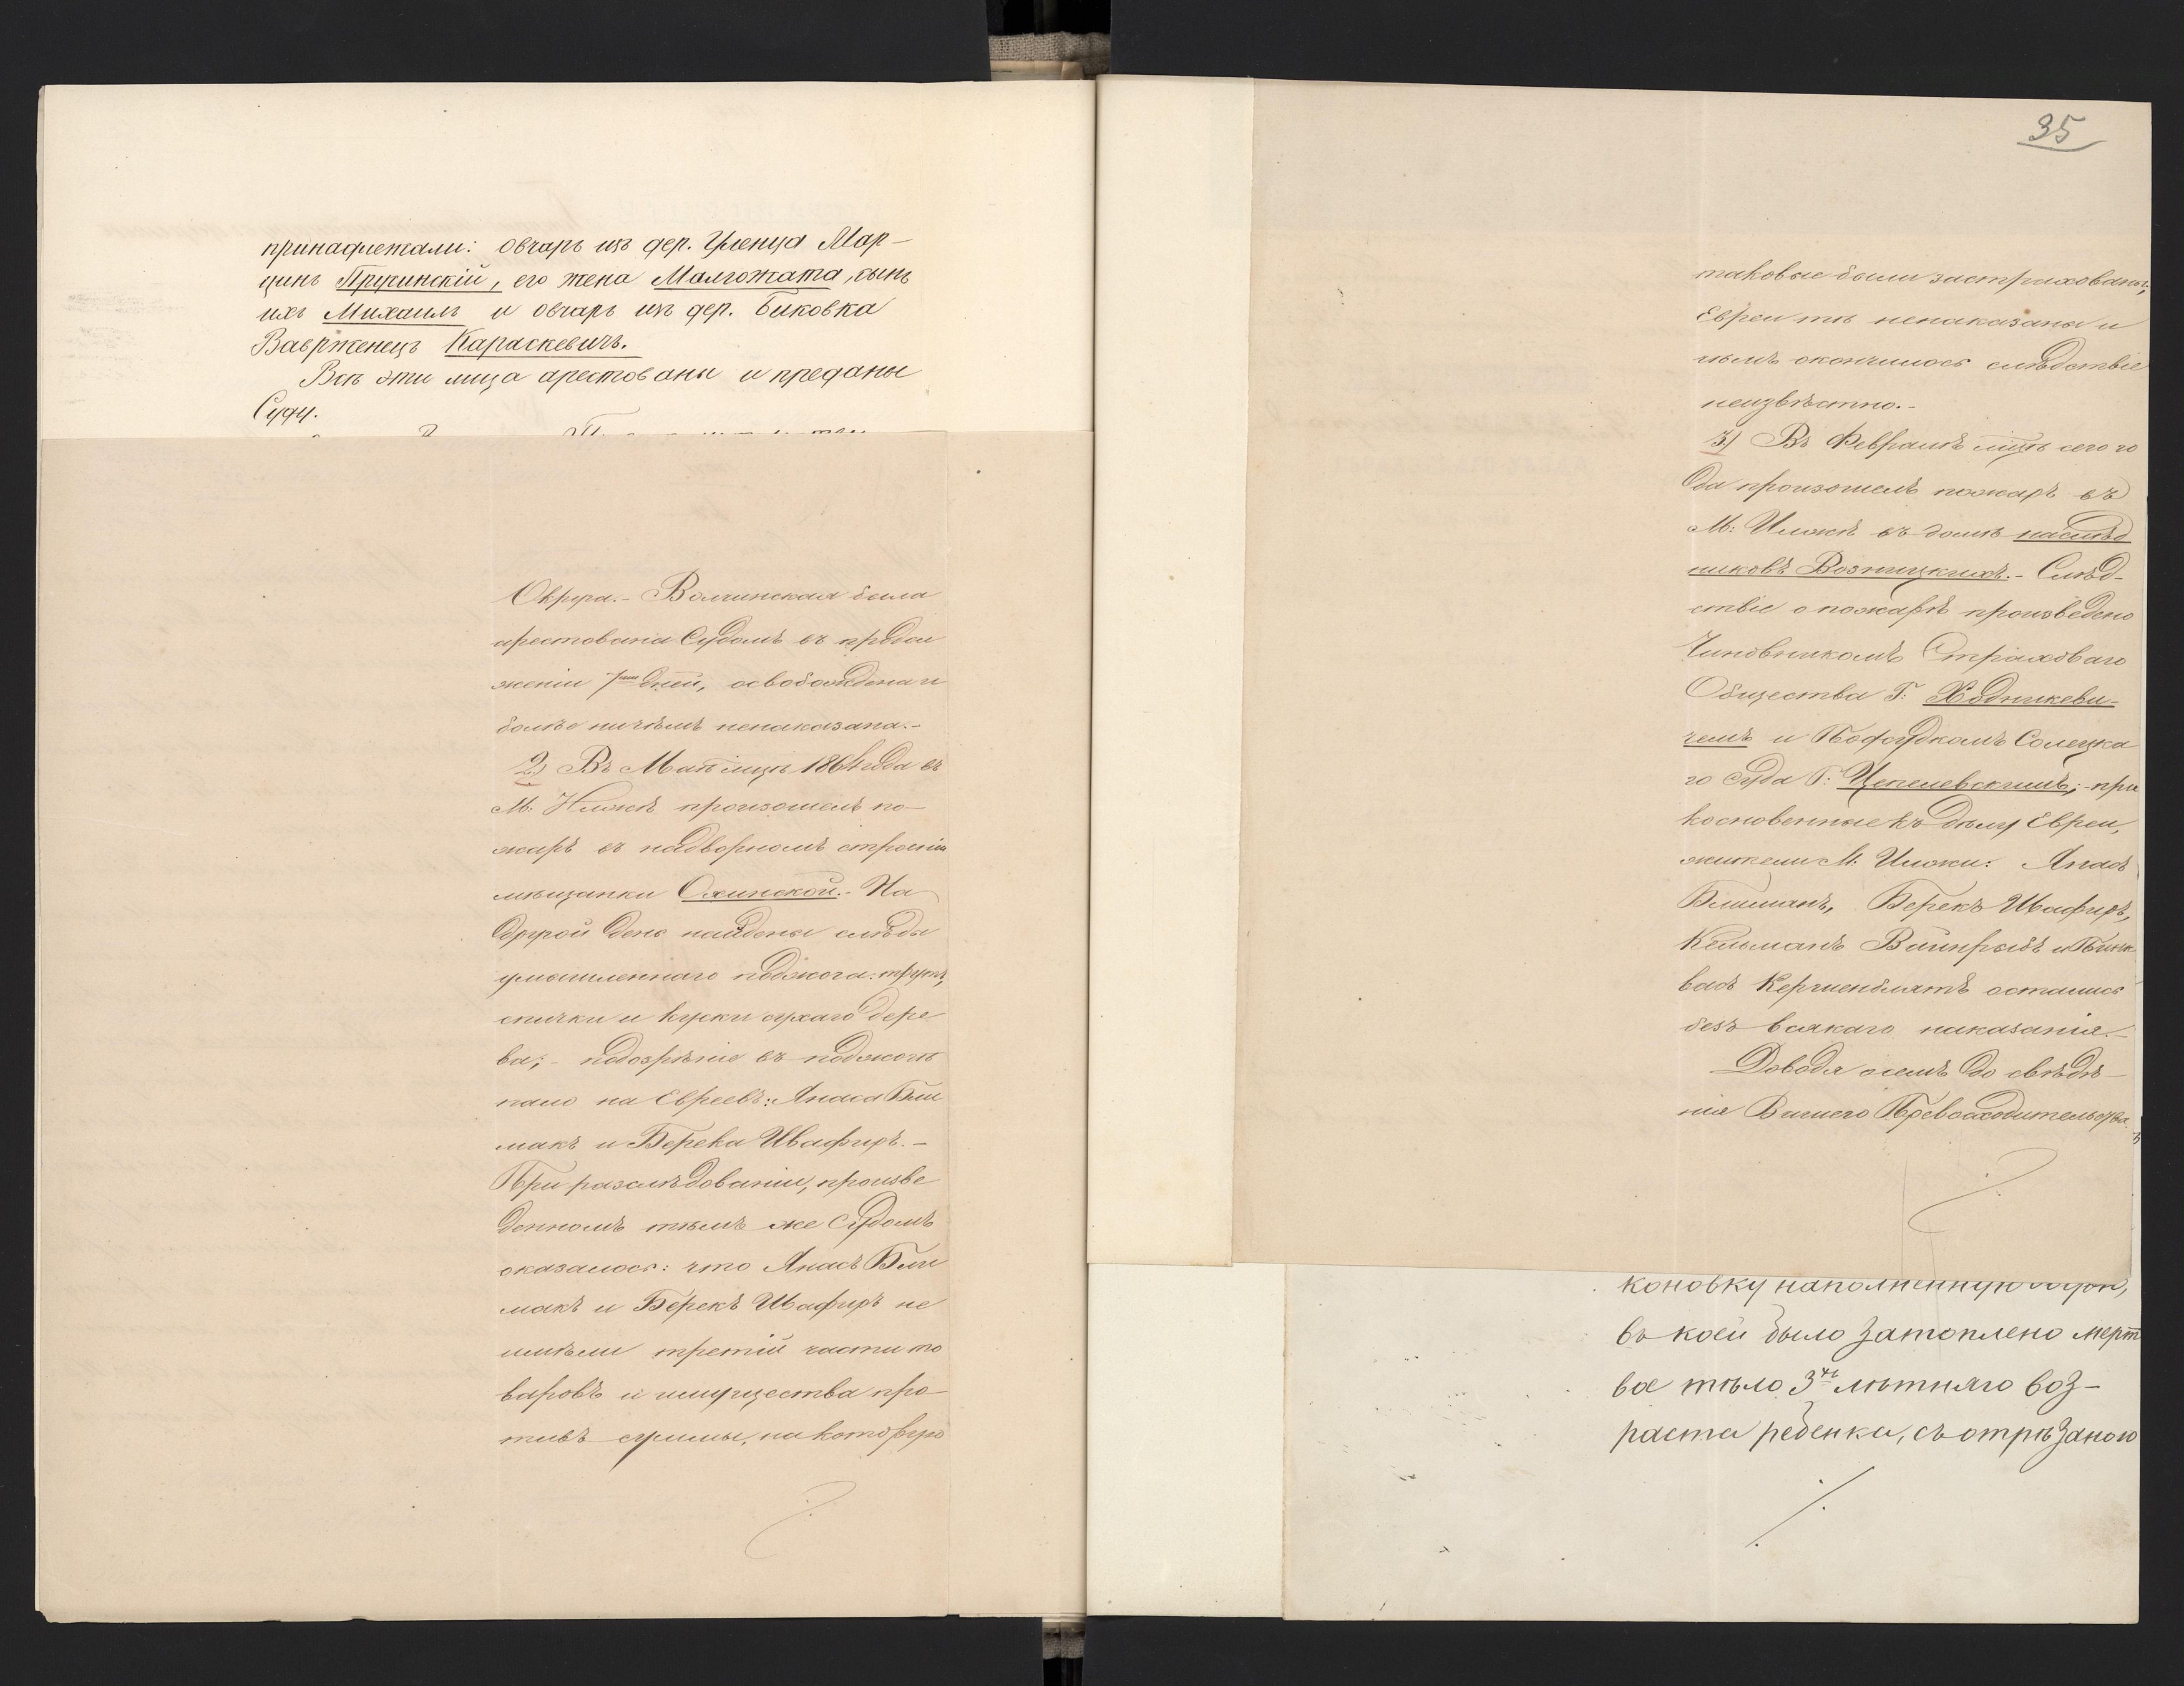 принадлежали: овчаръ изъ дер. Уленца Мар-
цинъ Пружинскій, его жена Малгожата, сынъ
ихъ Михаилъ и овчаръ изъ дер. Биковка
Ваврженецъ Караскевичъ.
Всѣ эти лица арестованы и преданы
Суду.
Округа.- Волчинская была
арестована Судомъ въ продол
женіи 7ми дней, освобождена и
болѣе ничѣмъ ненаказана.-
2) Въ Маѣ мцѣ 1864 года въ
М: Илжѣ произошелъ по-
жаръ въ надворномъ строеніи
мѣщанки Охинской.- На
другой день найдены слѣды
умышленнаго поджога: трутъ,
спички и куски сухаго дере
ва;- подозрѣніе въ поджогѣ
пало на Евреевъ: Анаса Бли
макъ и Берека Швафиръ.-
При разслѣдованіи, произве
денномъ тѣмъ же Судомъ
оказалось: что Янасъ Бли
макъ и Берекъ Швафиръ не
имѣли третій части то
варовъ и имущества про-
тивъ суммы, на которую
35
таковые были застрахованы;
Евреи тѣ ненаказаны и
чѣмъ окончилось слѣдствіе
неизвѣстно.-
3) Въ Февралѣ мцѣ сего го
да произошелъ пожаръ въ
М: Илжѣ въ домѣ наслѣд
никовъ Возницкихъ.- Слѣд-
ствіе о пожарѣ произведено
Чиновникомъ Страховаго
Общества Г: Ходникеви-
чемъ и Подсудкомъ Солецка
го Суда Г: Цепелевскимъ;- при
косновенные къ дѣлу Евреи,
жители М: Илжи: Янасъ
Блиманъ, Берекъ Швафиръ,
Кельманъ Вайнрыбъ и
остались
безъ всякаго наказанія.-
Доводя о семъ до свѣдѣ-
нія Вашего Превосходительства
коновку наполненную водою,
въ коей было затоплено мерт
вое тѣло 3хъ лѣтняго воз-
раста ребенка, съ отрѣзаною